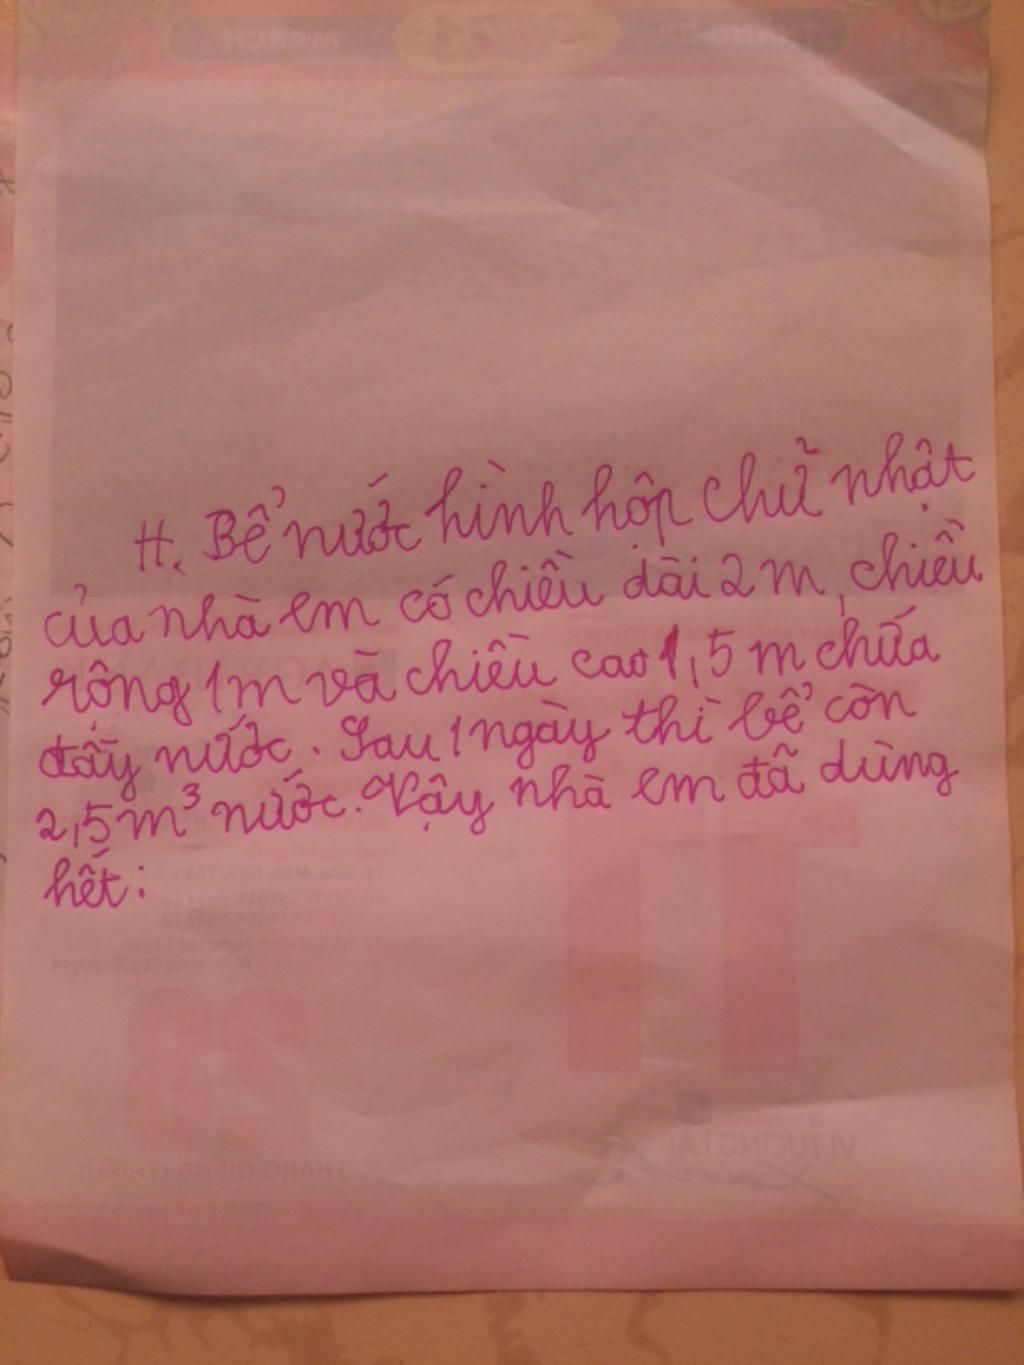 H. Bể nước hình hộp chữ nhật
của nhà em có chiều dài 2 m, chiều
rộng 1m và chiều cao 1,5 m chứa
đầy nước. Sau 1 ngày thì bể còn
2,5 m³ nước. Vậy nhà em đã dùng
hết: